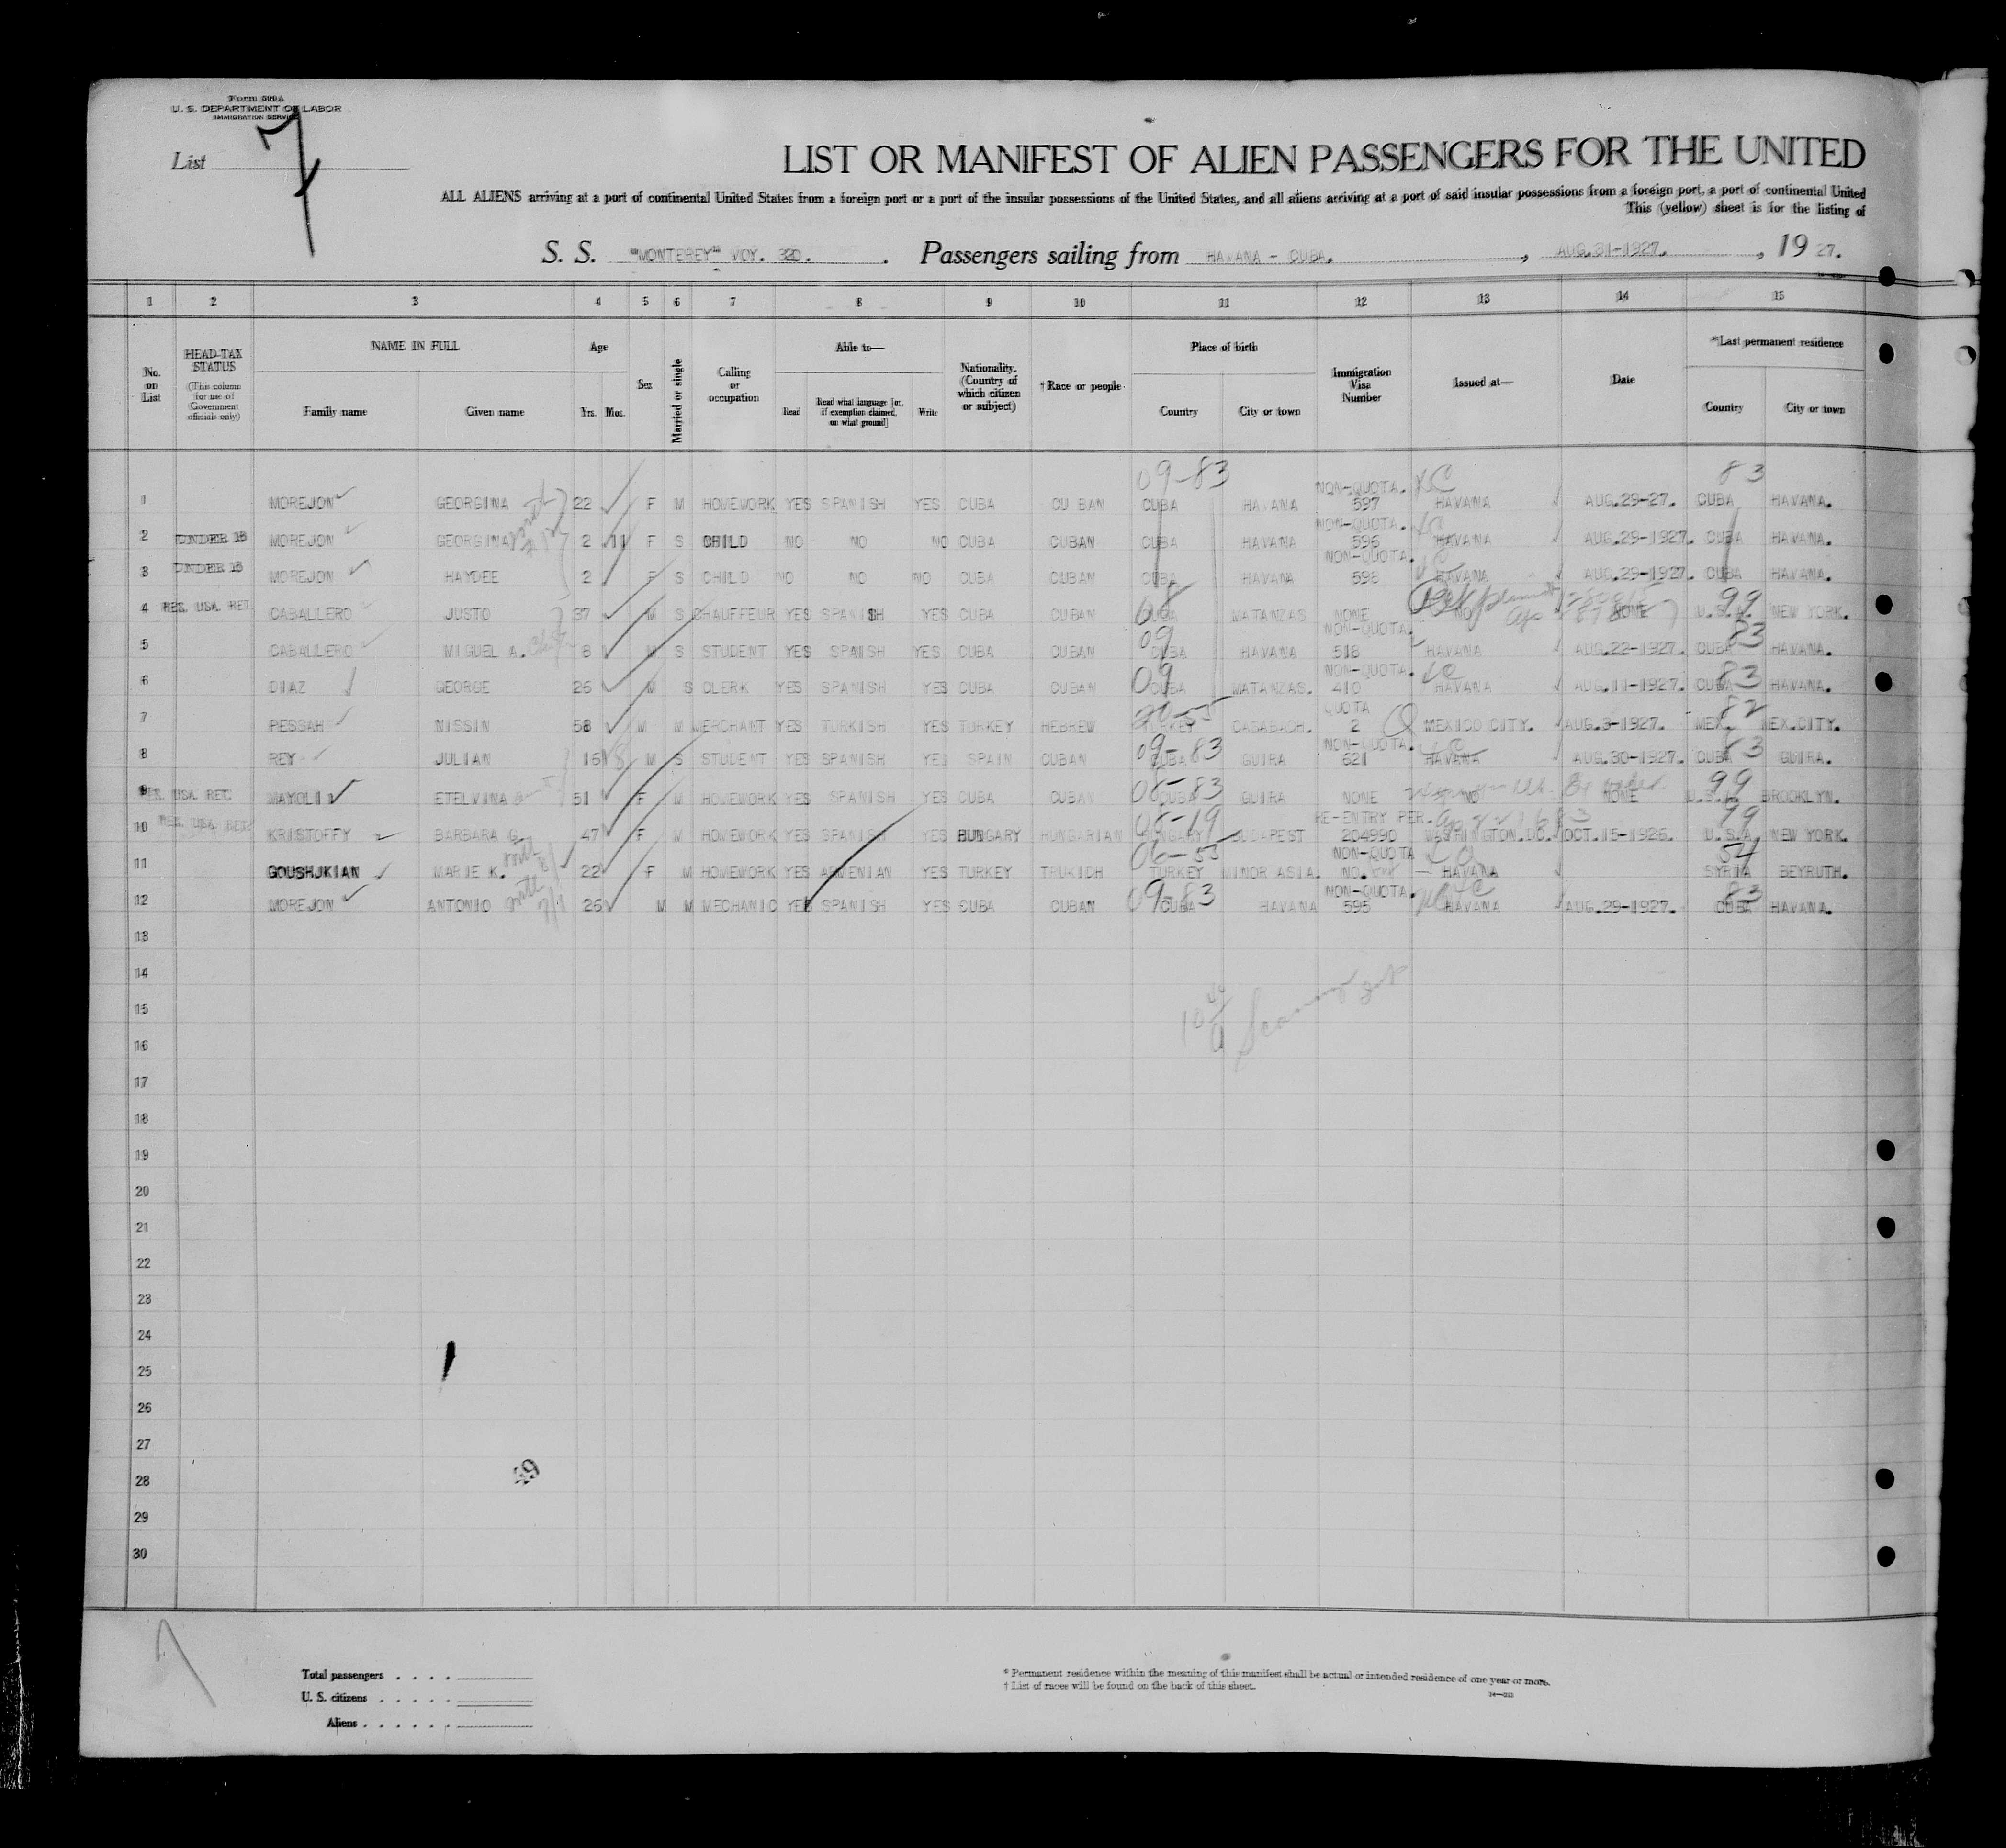 Form 500A
U. S. DEPARTMENT OF LABOR
IMMIGRATION SERVICE
List 7
LIST OR MANIFEST OF ALIEN PASSENGERS FOR THE UNITED
ALL ALIENS arriving at a port of continental United States from a foreign port or a port of the insular possessions of the United States, and all aliens arriving at a port of said insular possessions from a foreign port, a port of continental United
This (yellow) sheet is for the listing of
S. S. "MONTEREY" VOY. 320. Passengers sailing from HAVANA - CUBA. , AUG.31-1927. , 19 27.
1 2 3 4 5 6 7 8 9 10 11 12 13 14 15
No. on List
HEAD-TAX STATUS
(This column for use of Government officials only)
NAME IN FULL
Family name Given name
Age
Yrs. Mos.
Sex
Married or single
Calling or occupation
Able to—
Read
Read what language [or, if exemption claimed, on what ground]
Write
Nationality. (Country of which citizen or subject)
† Race or people
Place of birth
Country City or town
Immigration Visa Number
Issued at—
Date
*Last permanent residence
Country City or town
09-83 83
NON-QUOTA.
1 MOREJON GEORGINA 22 F M HOMEWORK YES SPANISH YES CUBA CU BAN CUBA HAVANA 597 HAVANA AUG.29-27. CUBA HAVANA.
NON-QUOTA.
2 UNDER 16 MOREJON GEORGINA 2 11 F S CHILD NO NO NO CUBA CUBAN CUBA HAVANA 596 HAVANA AUG.29-1927. CUBA HAVANA.
NON-QUOTA.
3 UNDER 16 MOREJON HAYDEE 2 F S CHILD NO NO NO CUBA CUBAN CUBA HAVANA 598 HAVANA AUG.29-1927. CUBA HAVANA.
4 RES. USA. RET. CABALLERO JUSTO 37 M S CHAUFFEUR YES SPANISH YES CUBA CUBAN CUBA MATANZAS NONE NO NONE U.S.A. 99 NEW YORK.
NON-QUOTA.
5 CABALLERO MIGUEL A. 8 M S STUDENT YES SPANISH YES CUBA CUBAN 09 CUBA HAVANA 518 HAVANA AUG.22-1927. CUBA 83 HAVANA.
NON-QUOTA.
6 DIAZ GEORGE 26 M S CLERK YES SPANISH YES CUBA CUBAN 09 CUBA MATANZAS. 410 HAVANA AUG.11-1927. CUBA 83 HAVANA.
QUOTA
7 PESSAH NISSIN 58 M M MERCHANT YES TURKISH YES TURKEY HEBREW 20-55 TURKEY DAGABACH. 2 Q MEXICO CITY. AUG.3-1927. MEX. 82 MEX.CITY.
NON-QUOTA.
8 REY JULIAN 16 M S STUDENT YES SPANISH YES SPAIN CUBAN 09-83 CUBA GUIRA 621 HAVANA AUG.30-1927. CUBA 83 GUIRA.
9 RES. USA. RET. MAYOLI ETELVINA 51 F M HOMEWORK YES SPANISH YES CUBA CUBAN 08-83 CUBA GUIRA NONE NO NONE U.S.A. 99 BROOKLYN.
RE-ENTRY PER.
10 RES. USA. RET. KRISTOFFY BARBARA G. 47 F M HOMEWORK YES SPANISH YES BUNGARY HUNGARIAN 08-19 HUNGARY BUDAPEST 204990 WASHINGTON.DC. OCT.15-1926. U.S.A. 99 NEW YORK.
NON-QUOTA
11 GOUSHJKIAN MARIE K. 22 F M HOMEWORK YES ARMENIAN YES TURKEY TRUKIDH 06-55 TURKEY MINOR ASIA. NO. HAVANA SYRIA 54 BEYRUTH.
NON-QUOTA.
12 MOREJON ANTONIO 26 M M MECHANIC YES SPANISH YES CUBA CUBAN 09-83 CUBA HAVANA 595 HAVANA AUG.29-1927. CUBA 83 HAVANA.
13
14
15
16
17
18
19
20
21
22
23
24
25
26
27
28
29
30
49
Total passengers . . . .
U. S. citizens . . . . .
Aliens . . . . . .
* Permanent residence within the meaning of this manifest shall be actual or intended residence of one year or more.
† List of races will be found on the back of this sheet.